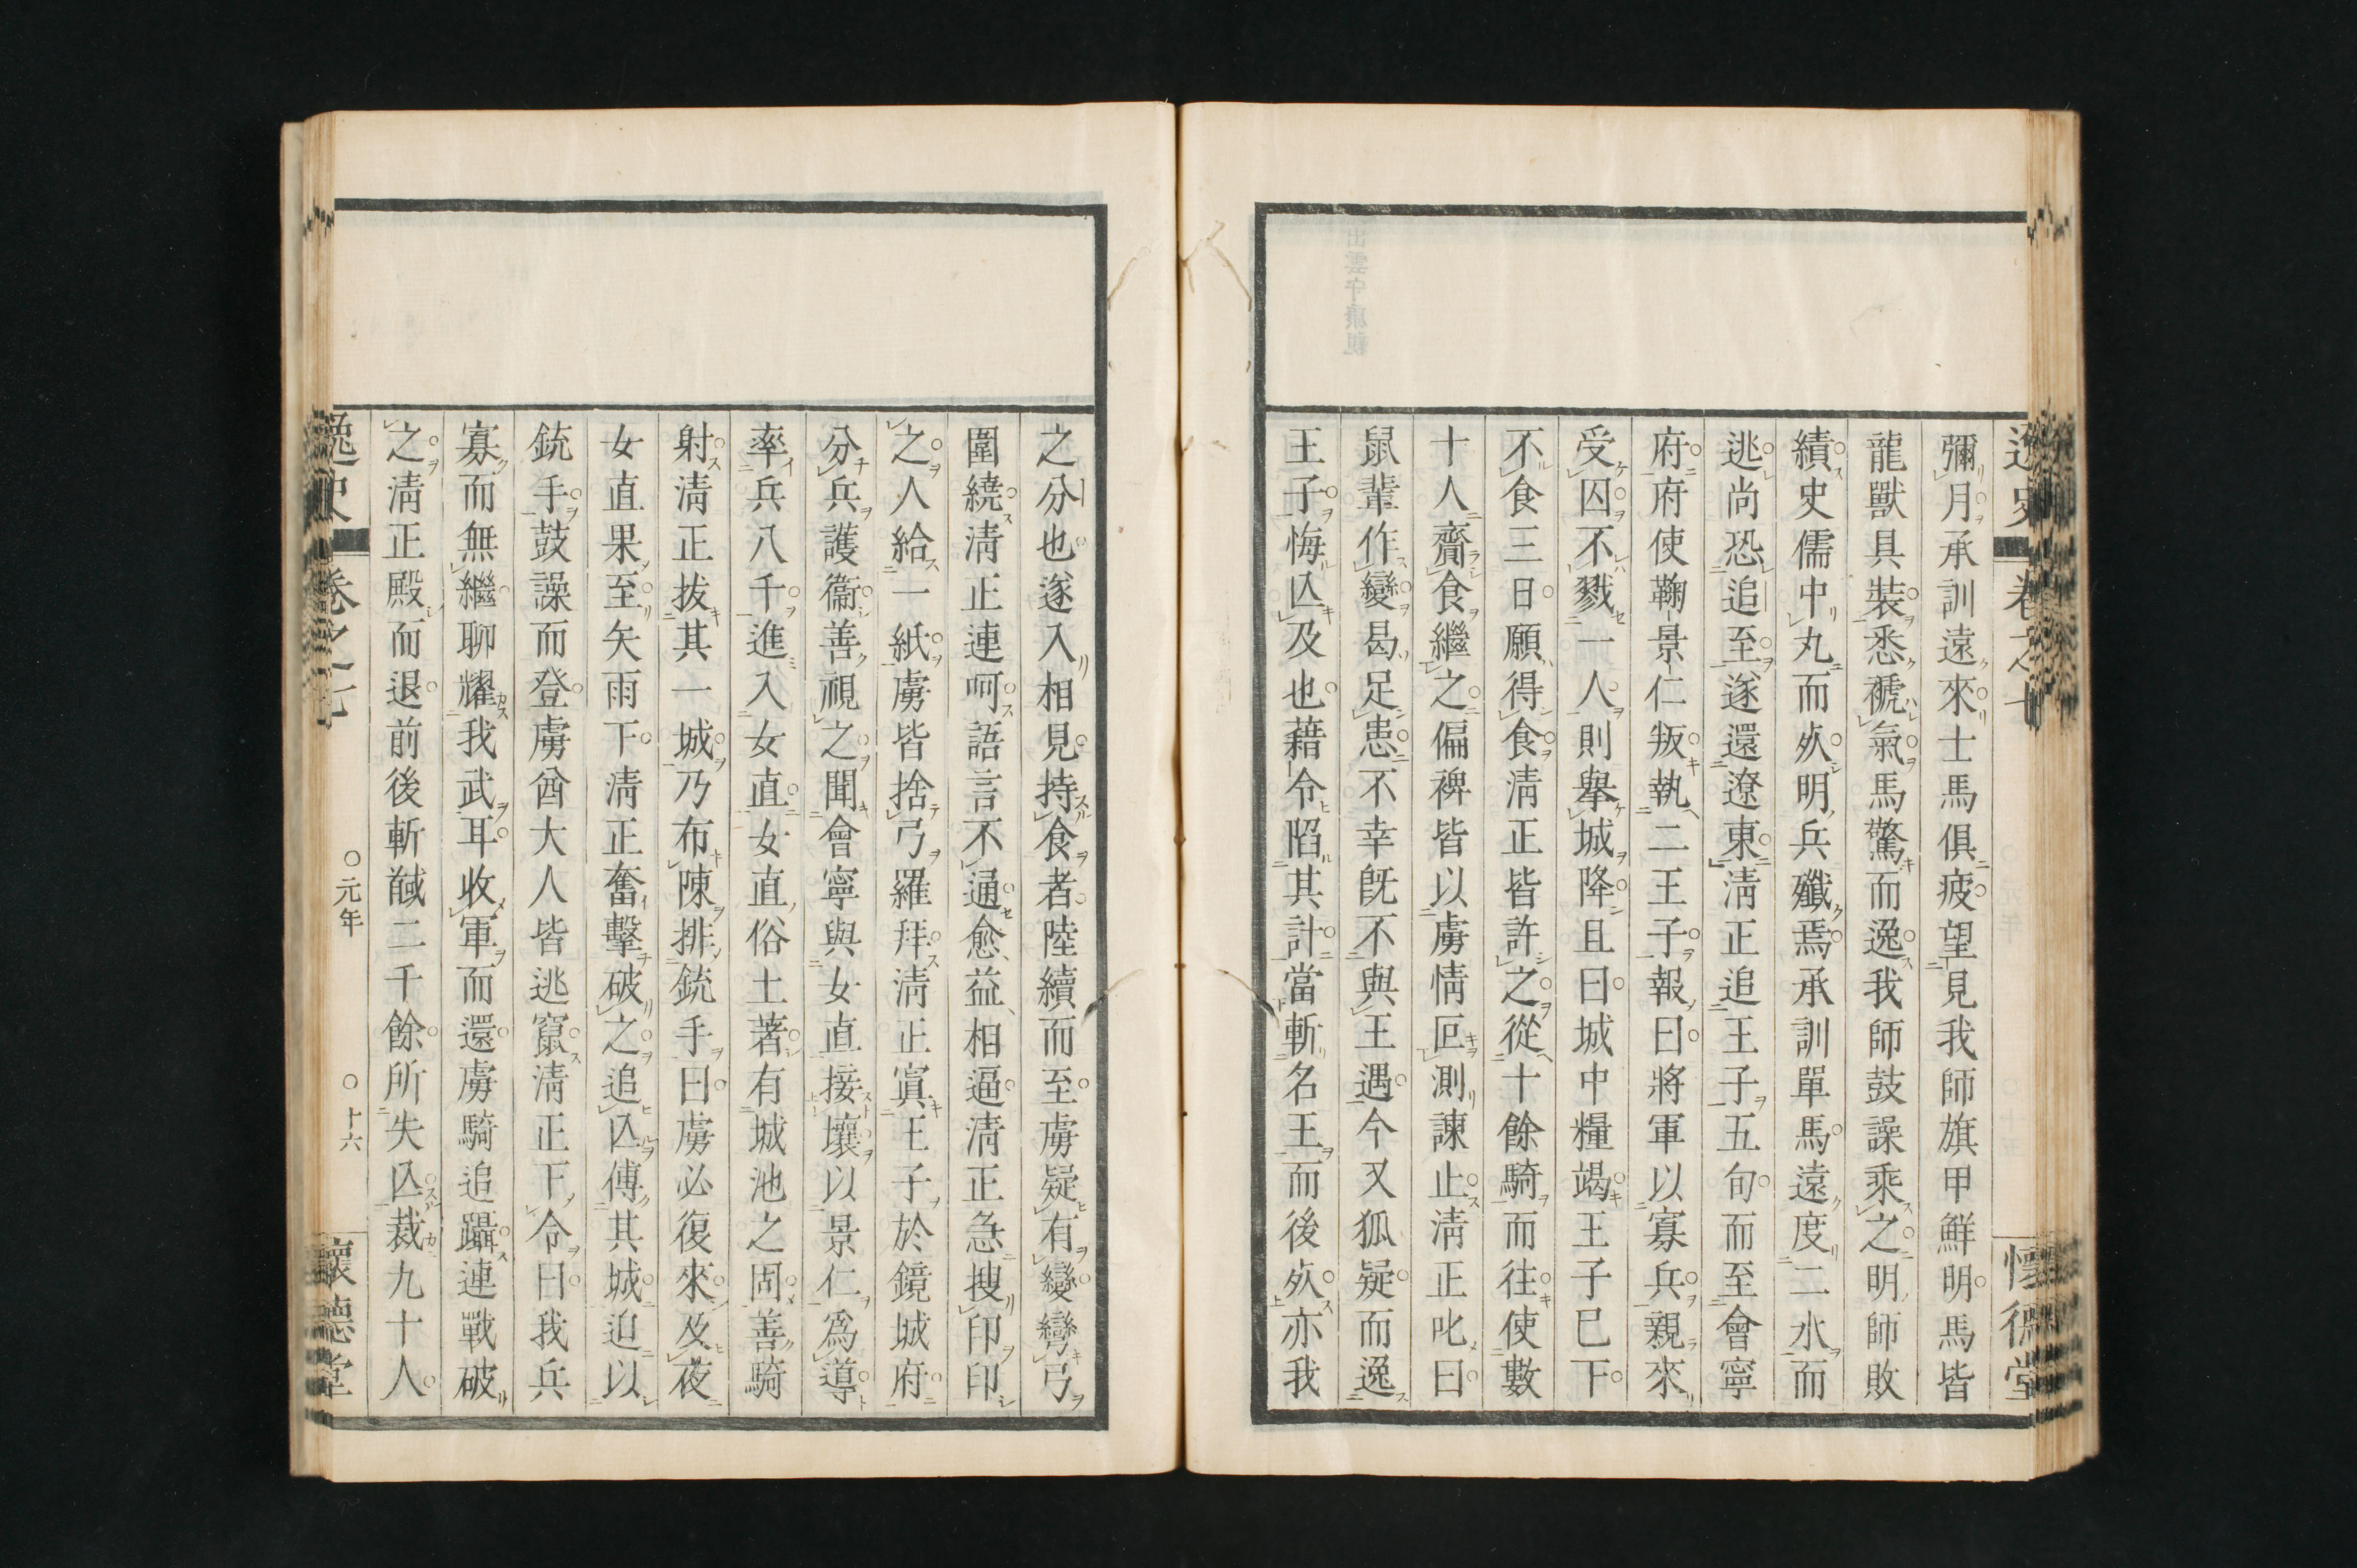 彌月承訓遠來士馬俱疲望見我師旗甲鮮明馬皆
龍獸具裝悉褫氣馬驚而逸我師鼓譟乘之明師敗
績史儒中丸而死明兵殲焉承訓單馬遠度二水而
逃尚恐追至遂還遼東清正追王子五旬而至會寧
府府使鞠景仁叛執二王子報曰將軍以寡兵親來
受囚不戮一人則舉城降且曰城中糧竭王子已下
不食三日願得食清正皆許之從十餘騎而往使數
十人齎食繼之偏裨皆以虜情叵測諫止清正叱曰
鼠輩作變曷足患不幸既不與王遇今又狐疑而逸
王子悔亾及也藉令陷其計當斬名王而後死亦我
之分也遂入相見持食者陸續而至虜疑有變彎弓
圍繞清正連呵語言不通愈益相逼清正急搜印印
之人給一紙虜皆捨弓羅拜清正寘王子於鏡城府
分兵護衞善視之聞會寧與女直接壤以景仁爲導
率兵八千進入女直女直俗土著有城池之固善騎
射清正拔其一城乃布陳排銃手曰虜必復來及夜
女直果至矢雨下清正奮擊破之追亾傅其城迫以
銃手鼓譟而登虜酋大人皆逃竄清正下令曰我兵
寡而無繼聊耀我武耳收軍而還虜騎追躡連戰破
之清正殿而退前後斬馘二千餘所失亾裁九十人
逸史 卷之七 ○元年 ○十六 懷德堂